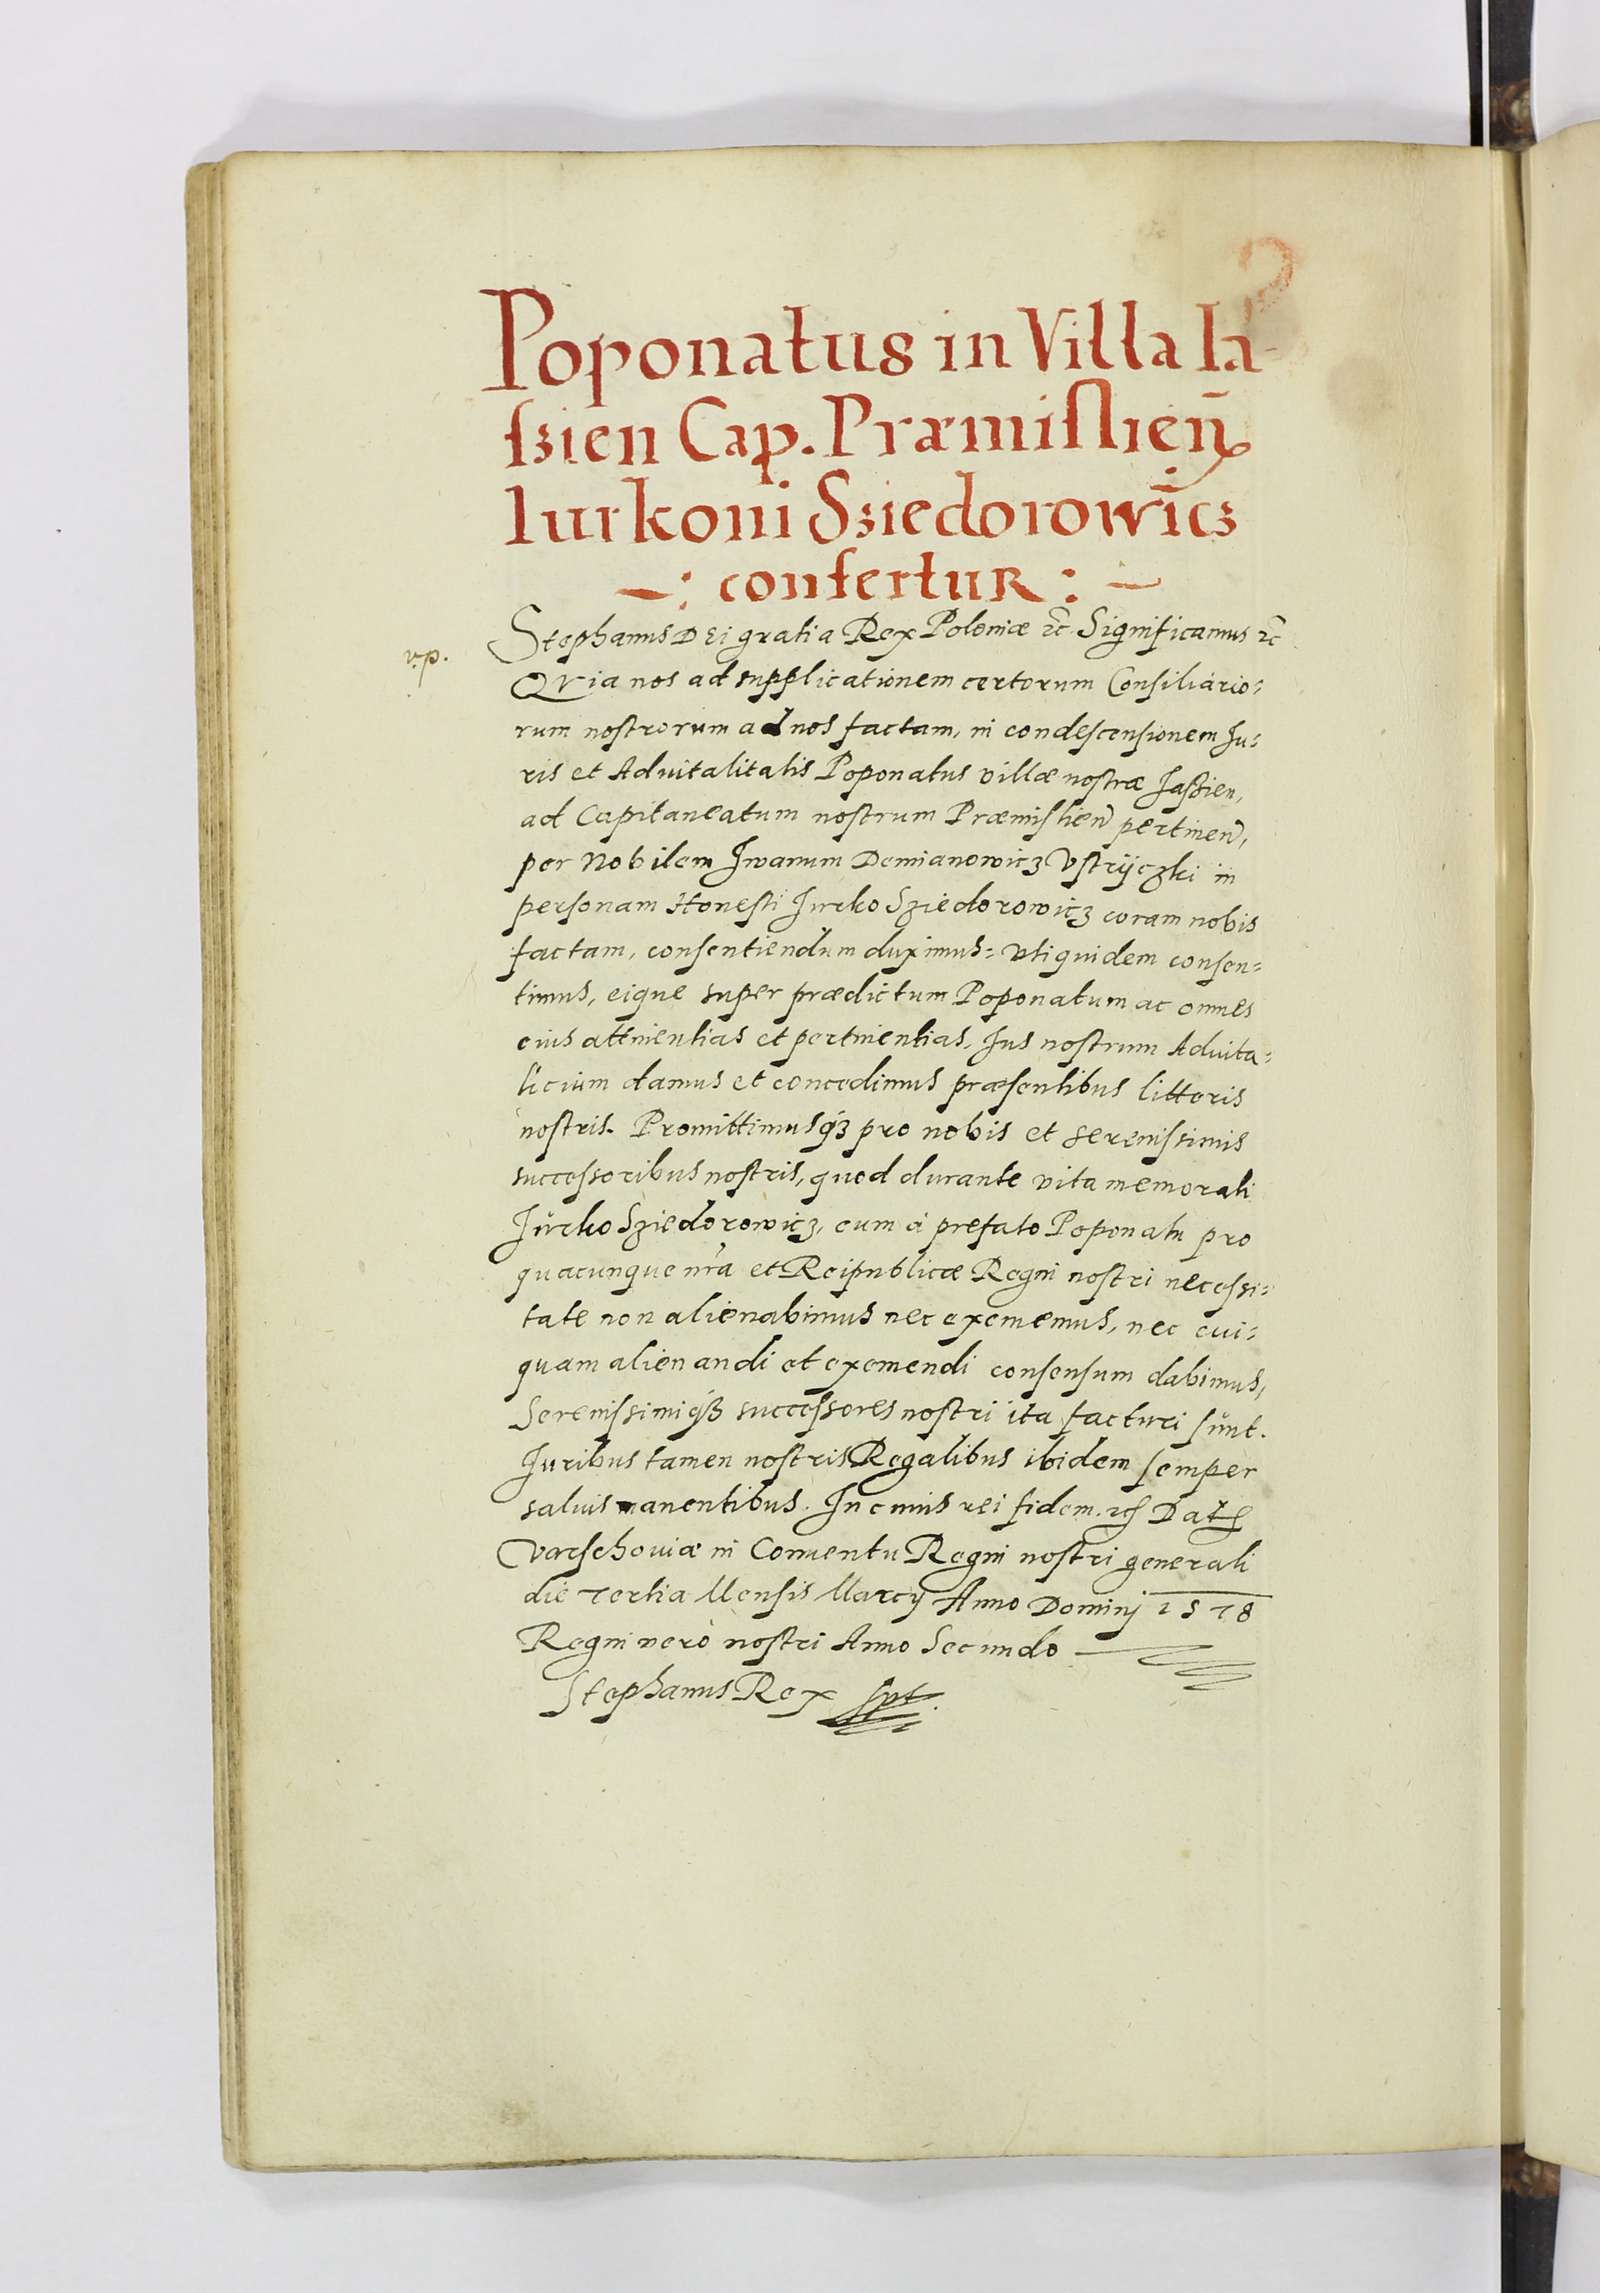 Poponatus in Villa Ia-
ſzien Cap. Præmiſlien̄
Iurkoni Sziedorowicz
—: confertur: —
v.p.
Stephanus DEi gratia Rex Poloniæ ꝛc̄ Significamus ꝛc̄
QVia nos ad supplicationem certorum Consiliario=
rum nostrorum ad nos factam, in condescensionem Iu=
ris et Aduitalitatis Poponatus villæ nostræ Iaſzien,
ad Capitaneatum nostrum Præmislien̄ pertinen̄,
per Nobilem Iwanum Demianowicz Vstrÿczki in
personam Honesti Iurko Sziedorowicz coram nobis
factam, consentiendum duximus: vti quidem consen=
timus, eique super prædictum Poponatum ac omnes
eius attinentias et pertinentias, Ius nostrum Aduita=
licium damus et concedimus præsentibus litteris
nostris. Promittimusqȝ pro nobis et serenissimis
successoribus nostris, quod durante vita memorati
Iurko Sziedorowicz, eum à prefato Poponatu pro
quacunque nr̄a et Reipublicæ Regni nostri necessi=
tate non alienabimus nec eximemus, nec cui=
quam alienandi et eximendi consensum dabimus,
Serenissimiqȝ successores nostri ita facturi sunt.
Iuribus tamen nostris Regalibus ibidem semper
saluis manentibus. In cuius rei fidem. ꝛc̄ Dat
Varschouiæ in Conuentu Regni nostri generali
die Tertia Mensis Marcÿ Anno Dominj 1578
Regni vero nostri Anno Secundo
Stephanus Rex spt.